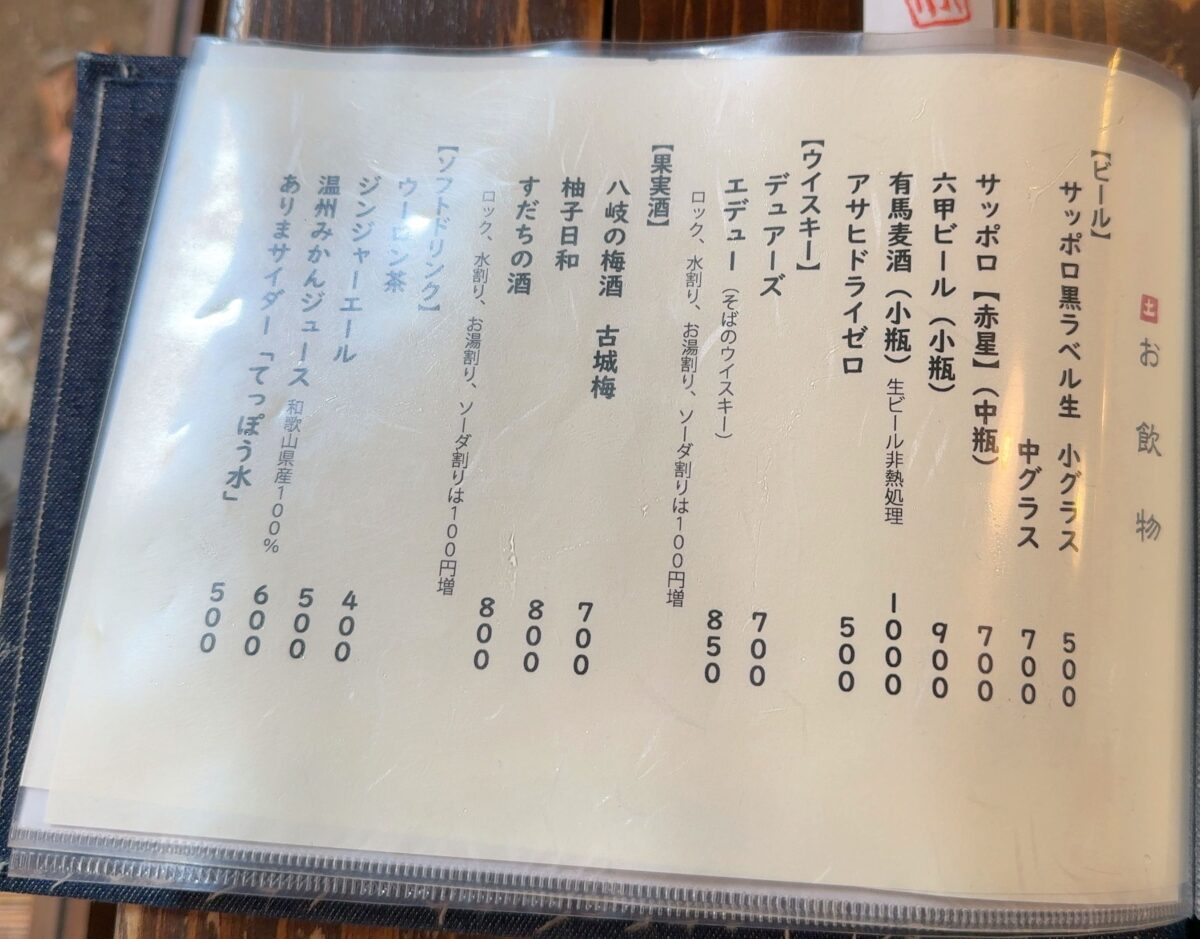 土 お飲物
【ビール】
サッポロ黒ラベル生 小グラス 500
中グラス 700
サッポロ【赤星】(中瓶) 700
六甲ビール(小瓶) 900
有馬麦酒(小瓶)生ビール非熱処理 1000
アサヒドライゼロ 500
【ウイスキー】
デュアーズ 700
エデュー(そばのウイスキー) 850
ロック、水割り、お湯割り、ソーダ割りは100円増
【果実酒】
八岐の梅酒 古城梅 700
柚子日和 800
すだちの酒 800
ロック、水割り、お湯割り、ソーダ割りは100円増
【ソフトドリンク】
ウーロン茶 400
ジンジャーエール 500
温州みかんジュース 和歌山県産100% 600
ありまサイダー「てっぽう水」 500